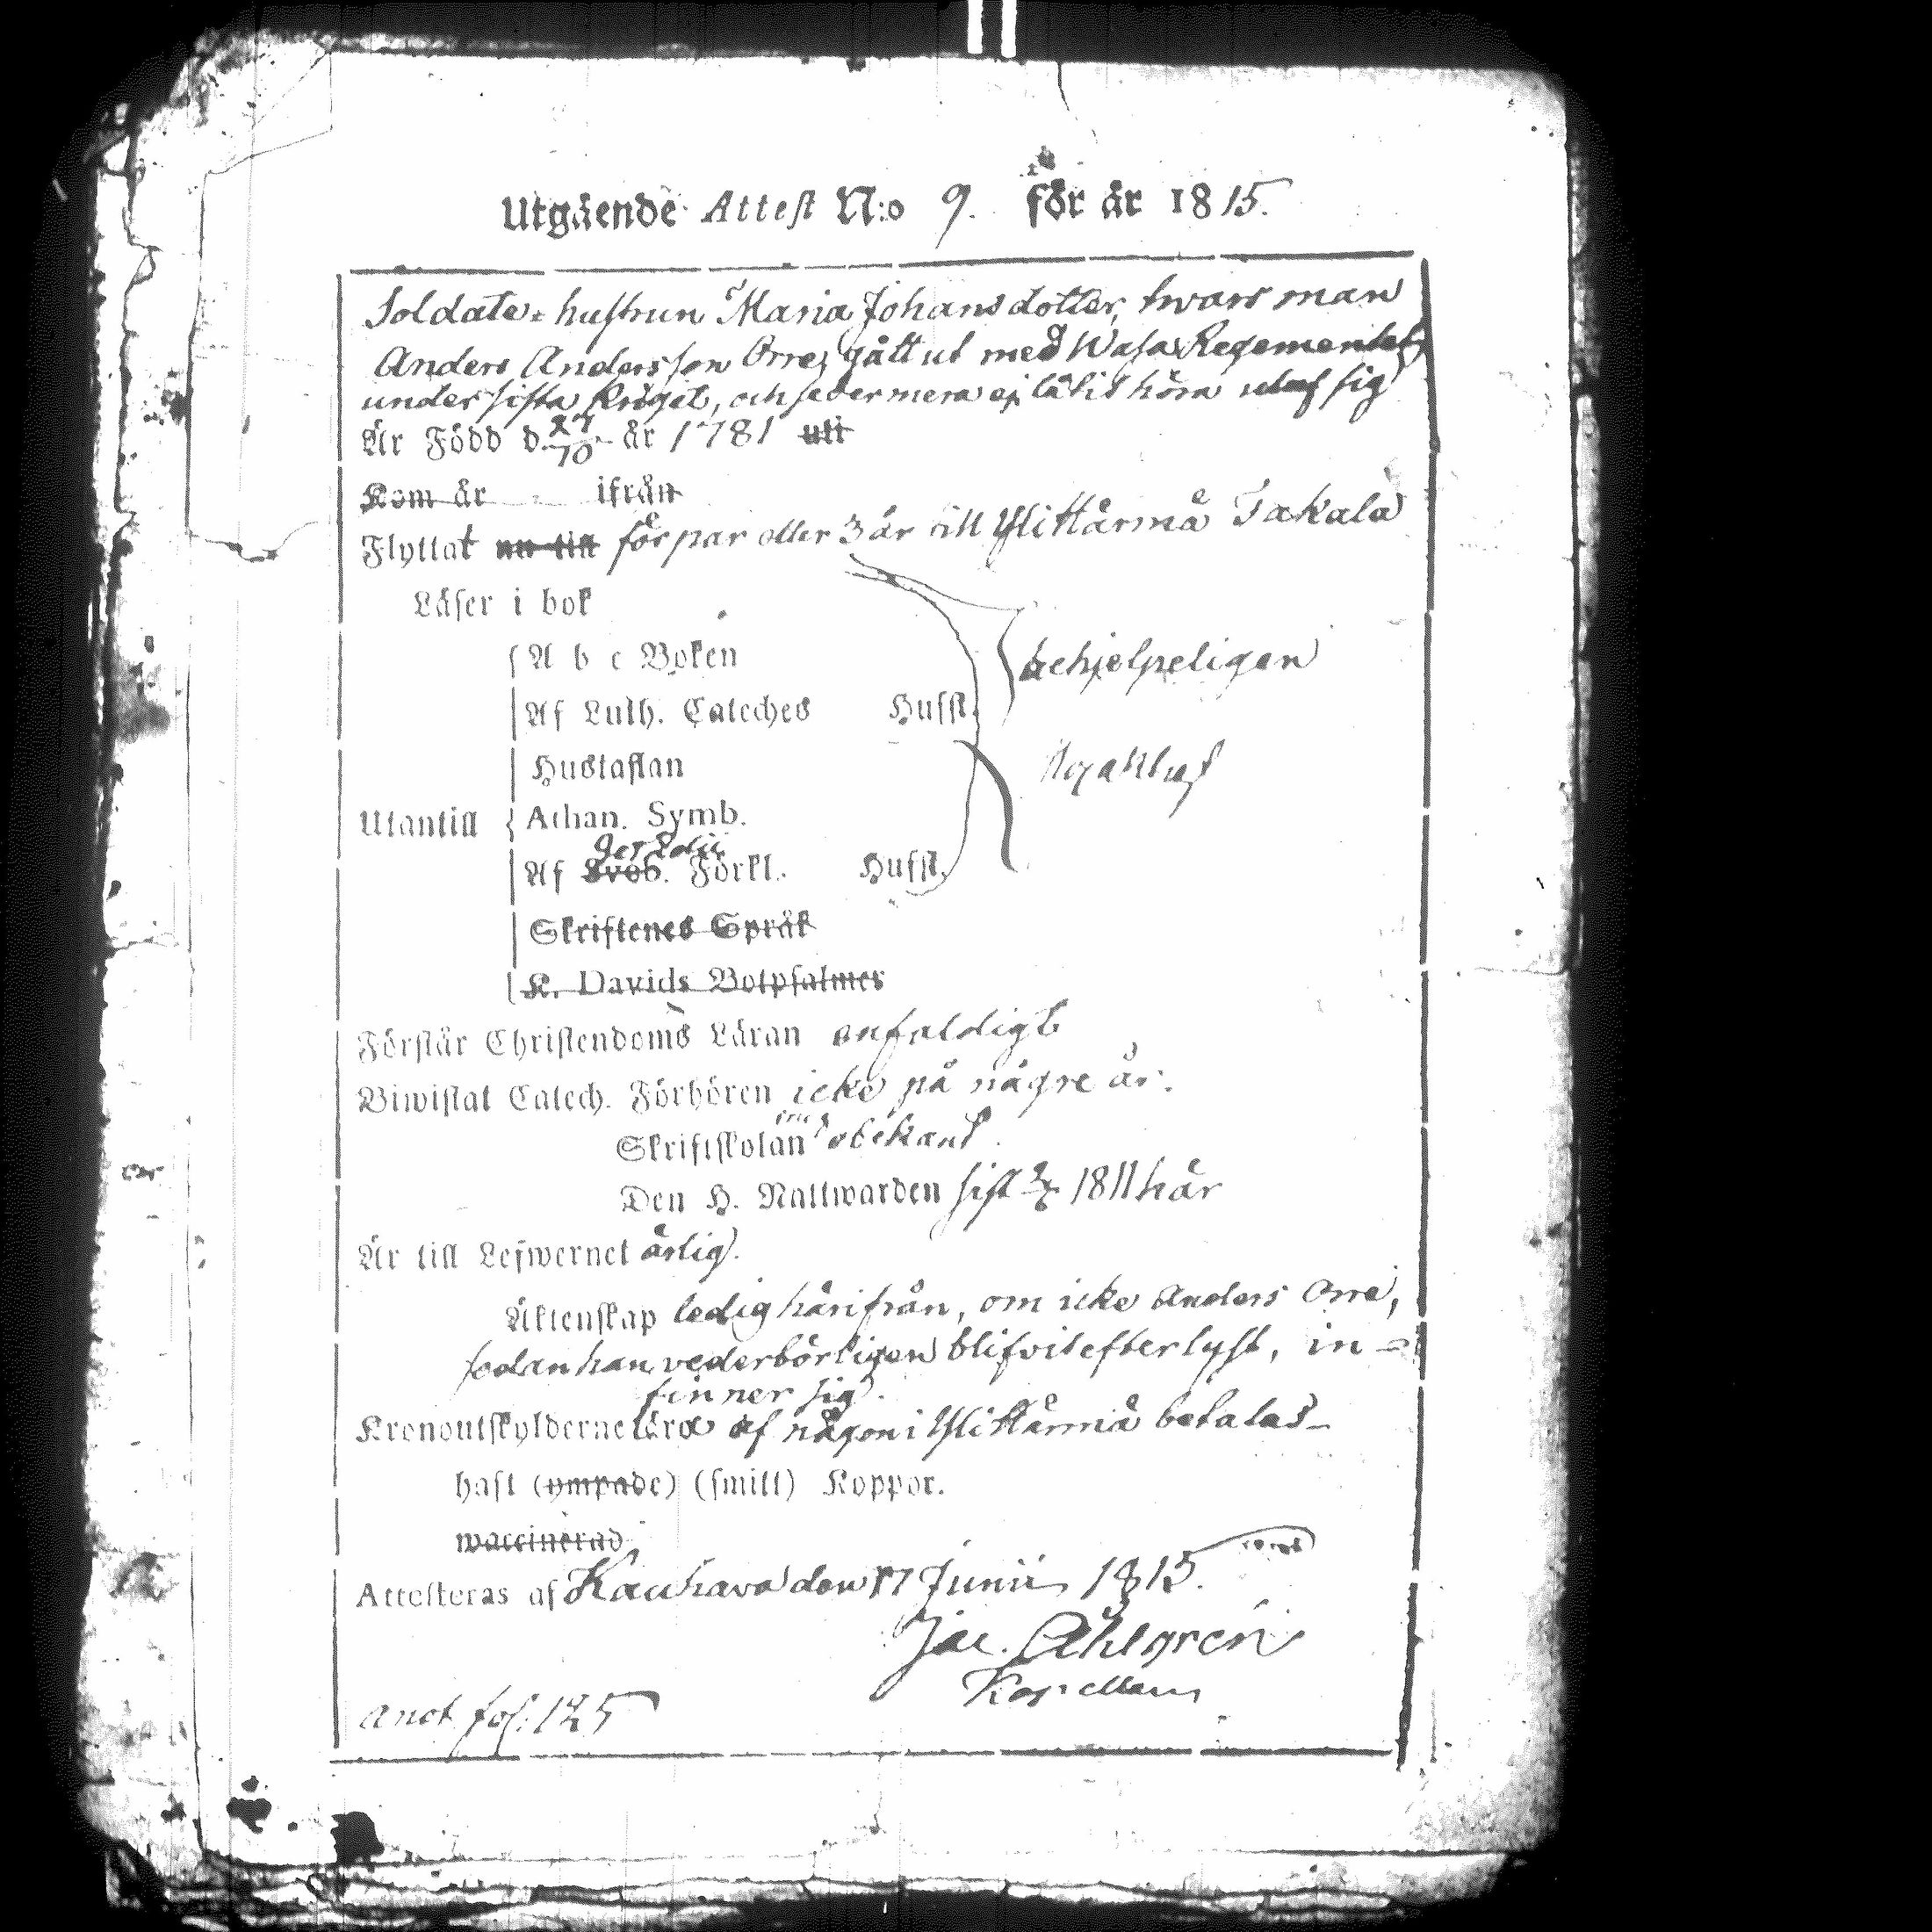 Utgående Attest N:o 9. för år 1815.
Soldate-hustrun Maria Johansdotter, hvars man
Anders Andersson Orre, gått ut med Wasa Regemente
under sista kriget, och sedermera ej låtit höra utaf sig
Är Född d. 27/10 år 1781 uti
Kom år ifrån
Flyttat nu till för par eller 3 år till Ylihärmä Takala
Läser i bok
A b c Boken behjelpeligen
Af Luth. Cateches Husst.
Hustaflan
Utantill Athan. Symb.
Af Sveb. Förkl. Husst.
Skriftenes Språk
K. Davids Botpsalmer
Förstår Christendoms Läran enfaldigt
Biwistat Catech. Förhören icke på någre år.
Skriftskolan obekant.
Den H. Nattwarden sist 1811 här
Är till Lefwernet ärlig.
Äktenskap ledig härifrån, om icke Anders Orre,
sedan han vederbörligen blifvit efterlyst, in-
finner sig.
Kronoutskylderne lära af någon i Ylihärmä betalas
haft (ympade) (smitt) Koppor.
waccinerad
Attesteras af Kauhava den 17 Junii 1815.
Jac. Ahlgren
Kapellan
anot. fol. 125